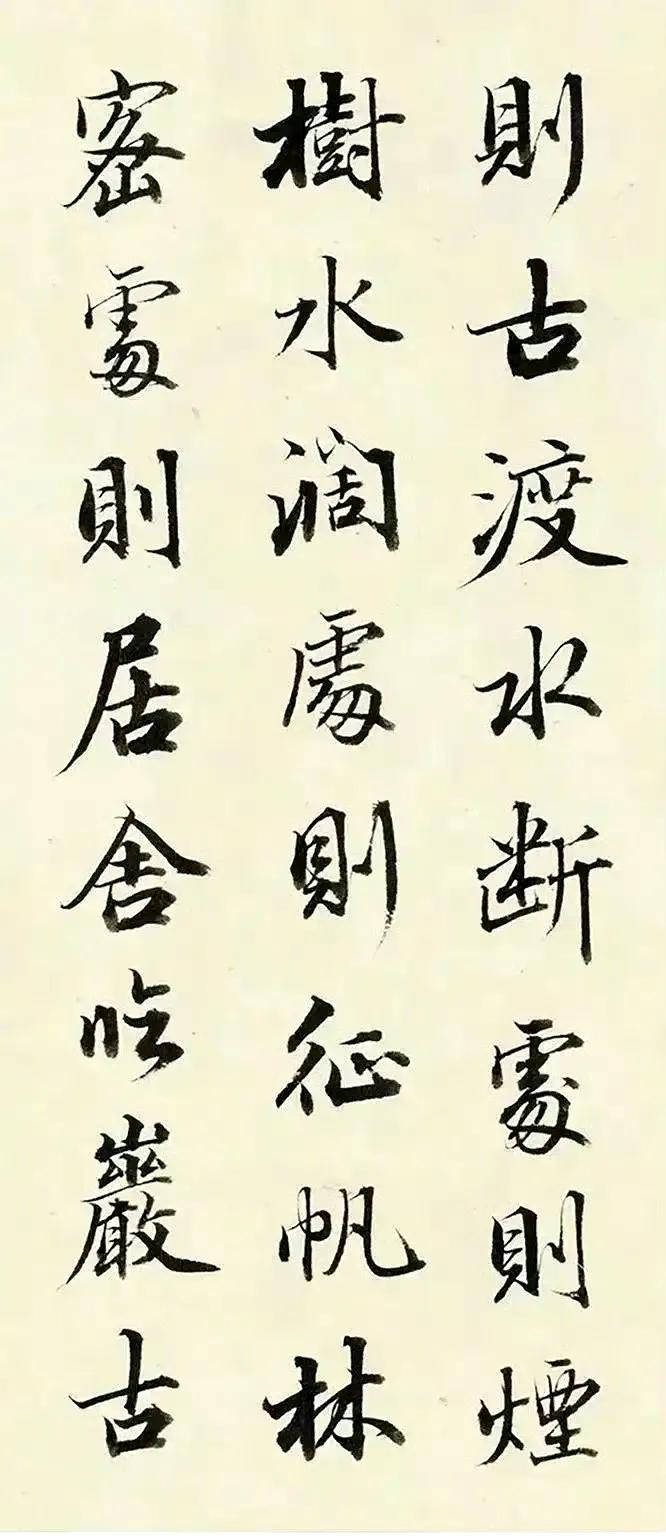 則古渡水断處則煙
樹水濶處則征帆林
密處則居舍临巖古